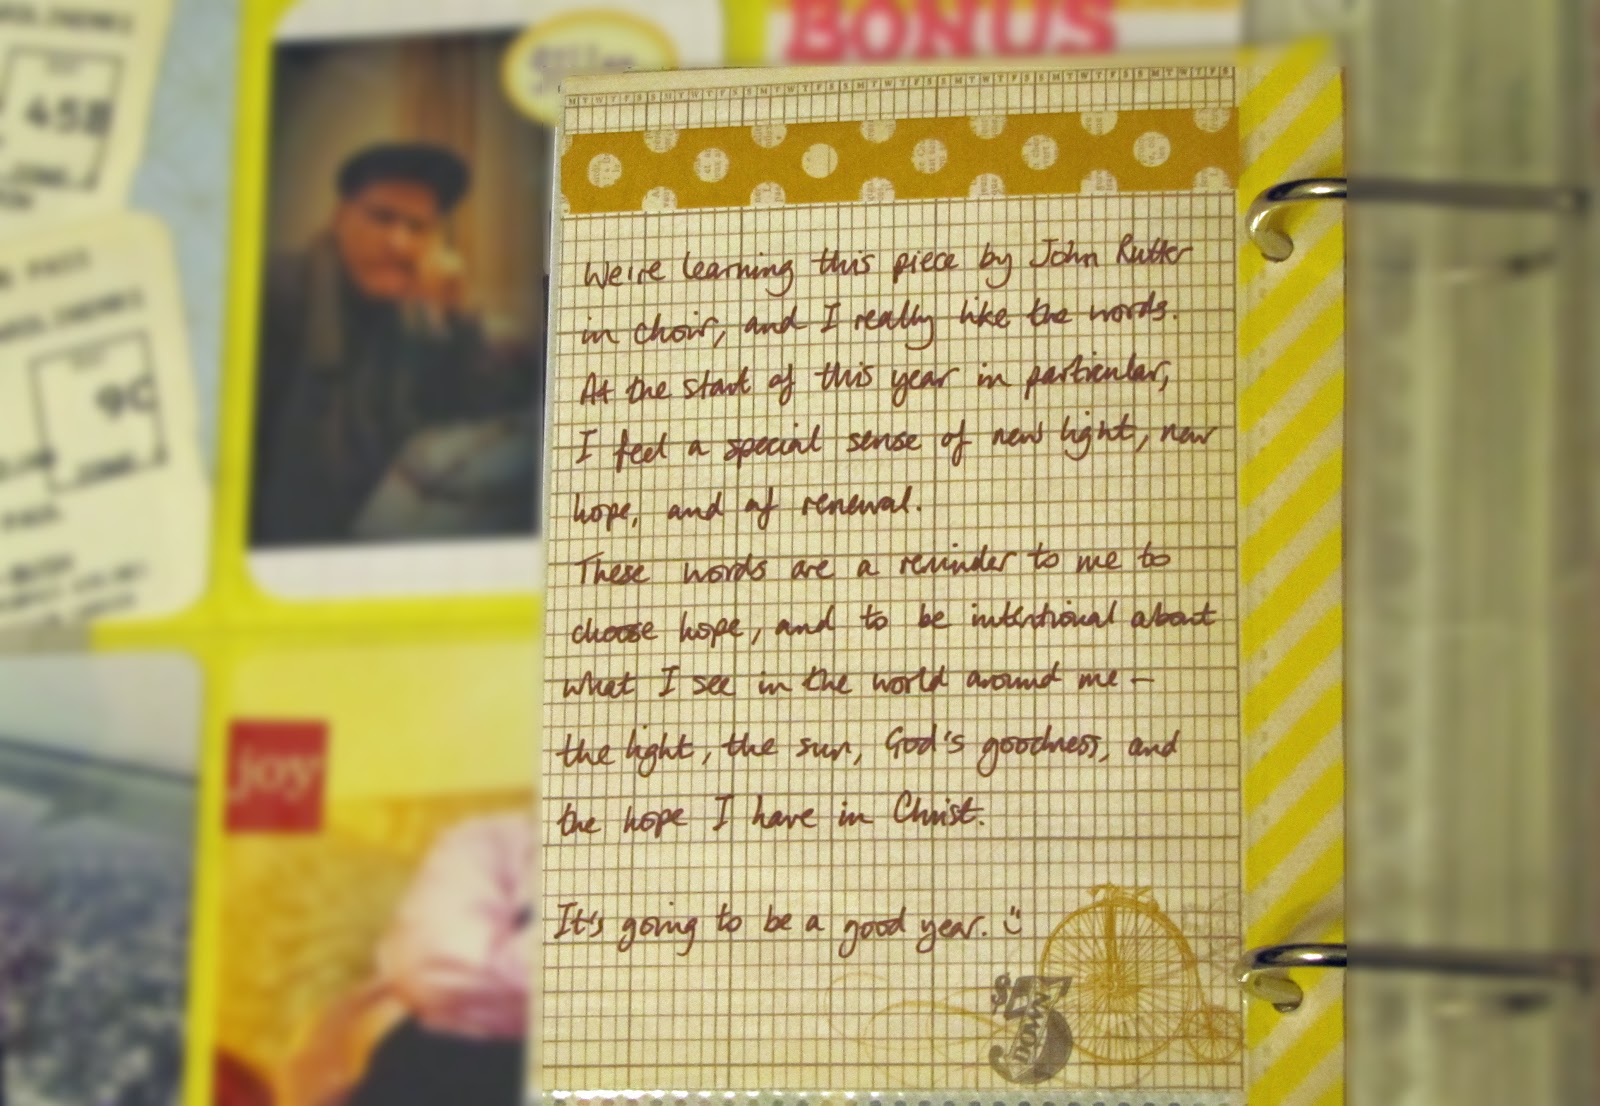 BONUS
458
90
joy
M T W T F S S M T W T F S S M T W T F S S M T W T F S S M T W T F S S M T W T F S S M T W T F S
We're learning this piece by John Rutter
in choir, and I really like the words.
At the start of this year in particular,
I feel a special sense of new light, new
hope, and of renewal.
These words are a reminder to me to
choose hope, and to be intentional about
what I see in the world around me –
the light, the sun, God's goodness, and
the hope I have in Christ.
It's going to be a good year. :)
$5
DOWN